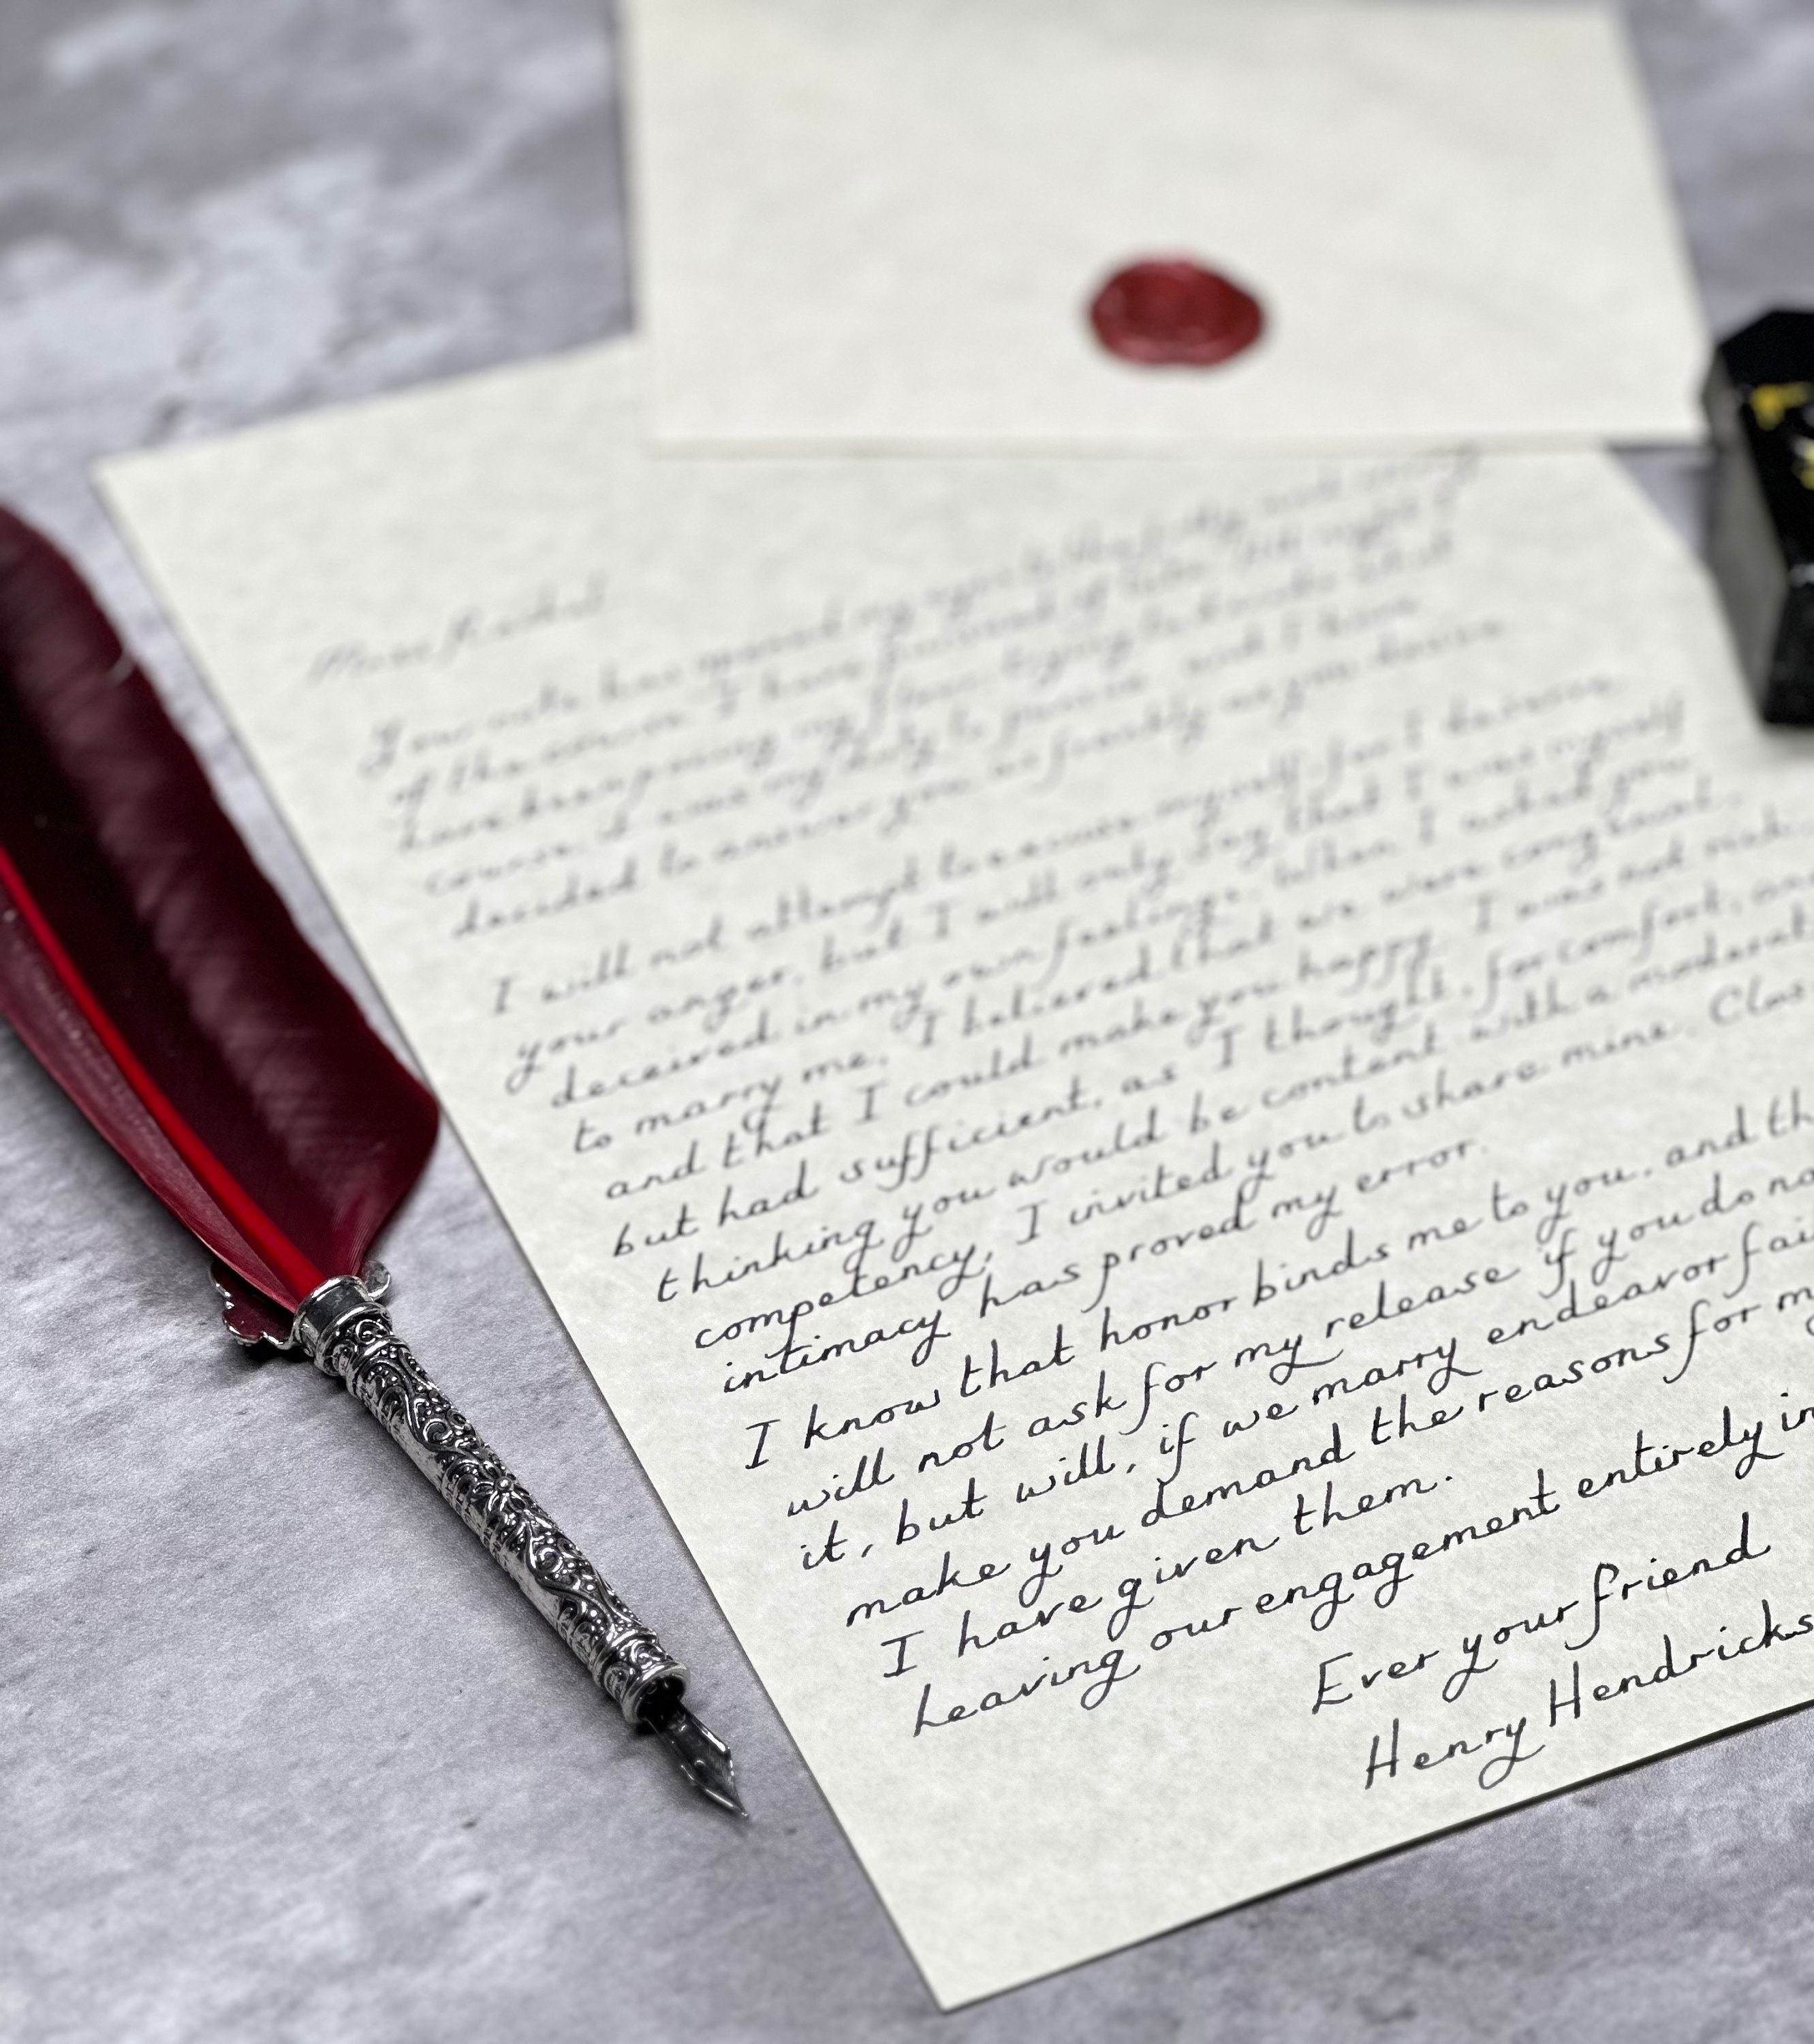 Your note has opened my eyes
of the course I have pursued
have been passing my
course, I owe my duty to pursue, and I have
decided to answer you as frankly as you desire.
I will not attempt to excuse myself, for I deserve
your anger, but I will only say that I was myself
deceived in my own feelings. When I asked you
to marry me, I believed that we were congenial,
and that I could make you happy. I was not rich,
but had sufficient, as I thought, for comfort, and
thinking you would be content with a moderate
competency, I invited you to share mine. Clos
intimacy has proved my error.
I know that honor binds me to you, and th
will not ask for my release if you do no
it, but will, if we marry endeavor fai
make you demand the reasons for m
I have given them.
Leaving our engagement entirely in
Ever your friend
Henry Hendricks